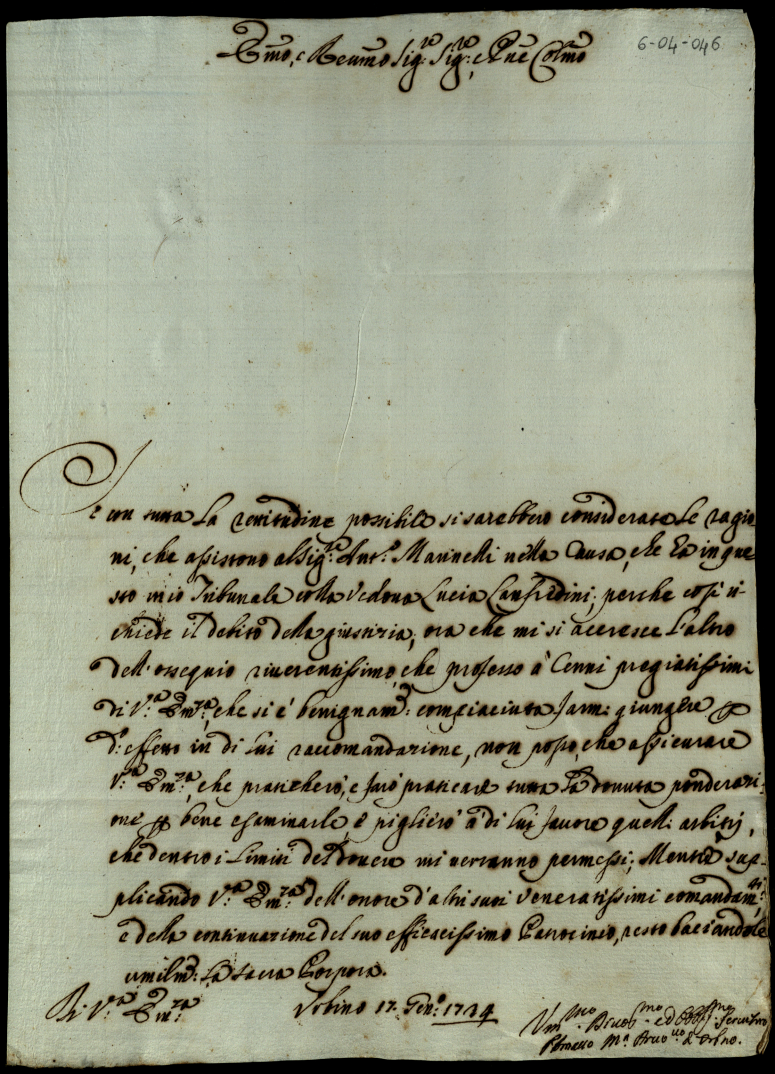 Emo, e Revmo Sig:re Sig:re, e Pne Colmo
6-04-046
Se con tutta la rettitudine possibile si sarebbero considerate le ragio
ni, che assistono al Sig:re Ant:o Marinelli nella Causa, che hà in que
sto mio Tribunale colla Vedova Lucia Lanfredini, perche così ri
chiede il debito della giustizia; ora che mi si accresce l'altro
dell'ossequio riverentissimo, che professo à Cenni pregiatissimi
di V:ra Em:za, che si è benignam: compiaciuta farmi giungere
d:o effetto in di lui raccomandazione, non posso, che assicurare
V:ra Em:za, che praticherò, e farò praticare tutta la dovuta ponderazi-
one p bene esaminarle, e piglierò à di lui favore quelli arbitrj,
che dentro i limiti del dovere mi verranno permessi; Mentre sup-
plicando V:ra Em:za dell'onore d'altri suoi veneratissimi comandam:ti,
e della continuazione del suo efficacissimo Patrocinio, resto baciandole
umilm: la Sacra Porpora.
Di V:ra Em:za
Urbino 17. Gen:o 1734
Um:mo Divo:mo ed Obb:mo Servitore
M:a Arciv:vo d'Urbino.